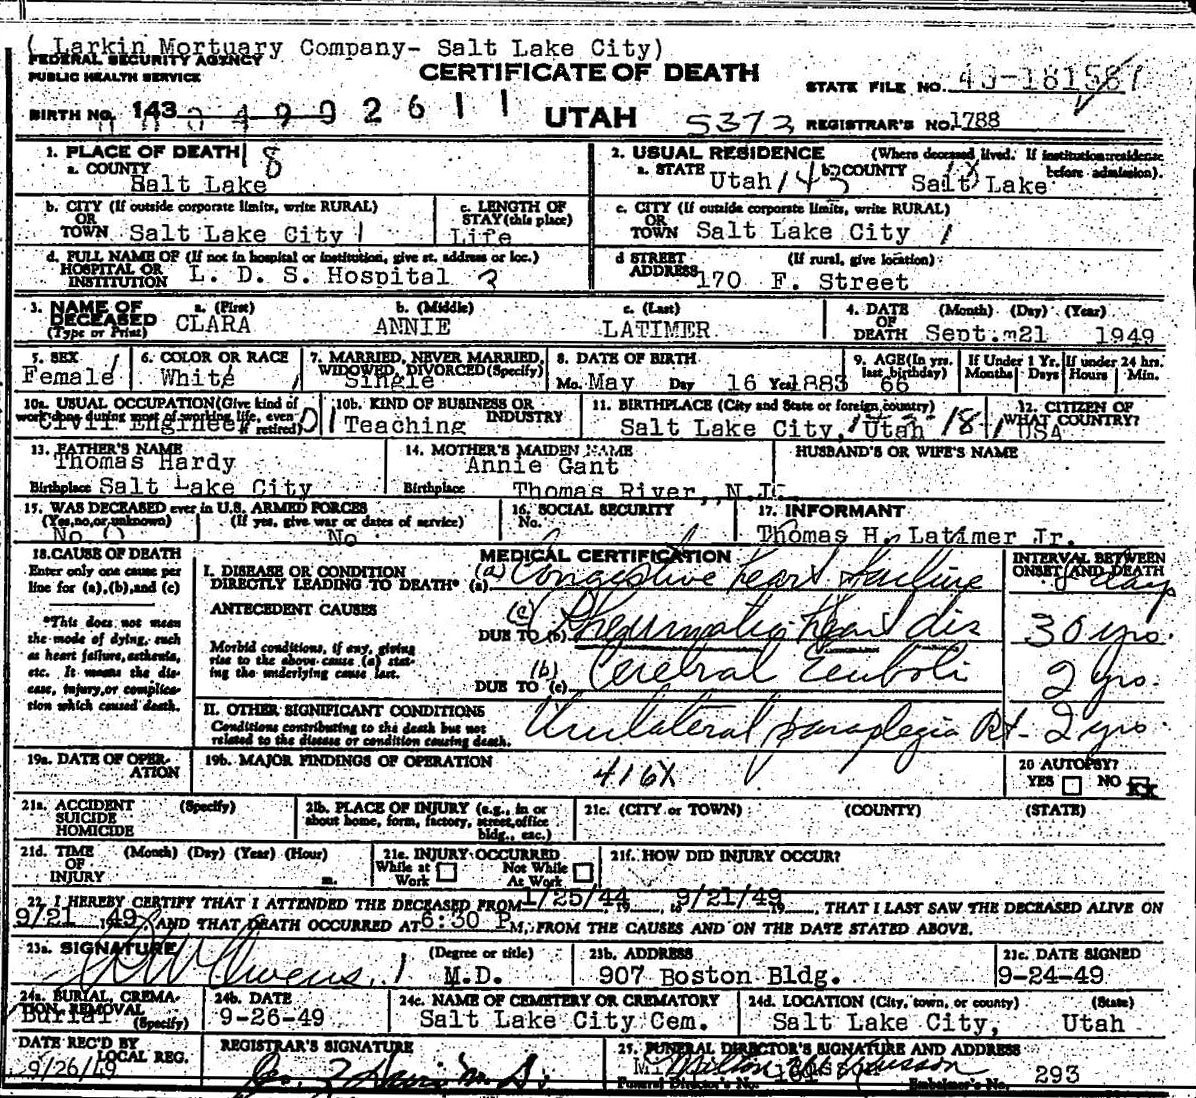 ( Larkin Mortuary Company- Salt Lake City)
FEDERAL SECURITY AGENCY
PUBLIC HEALTH SERVICE
CERTIFICATE OF DEATH
STATE FILE NO. 49-181587
BIRTH NO. 143
049902611
UTAH
5372
REGISTRAR'S NO. 1788
1. PLACE OF DEATH 18
a. COUNTY
Salt Lake
2. USUAL RESIDENCE (Where deceased lived. If institution: residence before admission).
a. STATE Utah 143 b. COUNTY Salt Lake 18
b. CITY (If outside corporate limits, write RURAL)
OR
TOWN Salt Lake City 1
c. LENGTH OF
STAY (this place)
Life
c. CITY (If outside corporate limits, write RURAL)
OR
TOWN Salt Lake City 1
d. FULL NAME OF (If not in hospital or institution, give st. address or loc.)
HOSPITAL OR
INSTITUTION L. D. S. Hospital
d STREET (If rural, give location)
ADDRESS 170 F. Street
3. NAME OF
DECEASED
(Type or Print)
a. (First)
CLARA
b. (Middle)
ANNIE
c. (Last)
LATIMER
4. DATE (Month) (Day) (Year)
OF
DEATH Sept. 21 1949
5. SEX
Female 1
6. COLOR OR RACE
White 1
7. MARRIED, NEVER MARRIED,
WIDOWED, DIVORCED (Specify)
Single
8. DATE OF BIRTH
Mo. May Day 16 Year 1883
9. AGE (In yrs. last birthday)
66
If Under 1 Yr.
Months Days
If under 24 hrs.
Hours Min.
10a. USUAL OCCUPATION (Give kind of work done during most of working life, even if retired)
Civil Engineer 01
10b. KIND OF BUSINESS OR INDUSTRY
Teaching
11. BIRTHPLACE (City and State or foreign country)
Salt Lake City, Utah
12. CITIZEN OF WHAT COUNTRY?
USA
13. FATHER'S NAME
Thomas Hardy
Birthplace Salt Lake City
14. MOTHER'S MAIDEN NAME
Annie Gant
Birthplace Thomas River, N.J.
HUSBAND'S OR WIFE'S NAME
15. WAS DECEASED ever in U.S. ARMED FORCES
(Yes, no, or unknown) (If yes, give war or dates of service)
No 0 No
16. SOCIAL SECURITY
No.
17. INFORMANT
Thomas H. Latimer Jr.
18. CAUSE OF DEATH
Enter only one cause per
line for (a), (b), and (c)
*This does not mean
the mode of dying, such
as heart failure, asthenia,
etc. It means the dis-
ease, injury, or complica-
tion which caused death.
MEDICAL CERTIFICATION
INTERVAL BETWEEN
ONSET AND DEATH
I. DISEASE OR CONDITION
DIRECTLY LEADING TO DEATH* (a) (a) Congestive heart failure day
ANTECEDENT CAUSES
Morbid conditions, if any, giving
rise to the above cause (a) stat-
ing the underlying cause last.
DUE TO (b) (c) Rheumatic heart dis 30 yrs.
DUE TO (c) (b) Cerebral Emboli 2 yrs.
II. OTHER SIGNIFICANT CONDITIONS
Conditions contributing to the death but not
related to the disease or condition causing death.
Unilateral paraplegia Rt- 2 yrs
19a. DATE OF OPER-
ATION
19b. MAJOR FINDINGS OF OPERATION
416X
20 AUTOPSY?
YES NO XX
21a. ACCIDENT (Specify)
SUICIDE
HOMICIDE
21b. PLACE OF INJURY (e.g., in or
about home, form, factory, street, office
bldg., esc.)
21c. (CITY or TOWN) (COUNTY) (STATE)
21d. TIME (Month) (Day) (Year) (Hour)
OF
INJURY m.
21e. INJURY OCCURRED
While at Work Not While At Work
21f. HOW DID INJURY OCCUR?
22. I HEREBY CERTIFY THAT I ATTENDED THE DECEASED FROM 1/25/44 19, to 9/21/49 19, THAT I LAST SAW THE DECEASED ALIVE ON
9/21 1949, AND THAT DEATH OCCURRED AT 6:30 P M, FROM THE CAUSES AND ON THE DATE STATED ABOVE.
23a. SIGNATURE (Degree or title)
Owens M.D.
23b. ADDRESS
907 Boston Bldg.
23c. DATE SIGNED
9-24-49
24a. BURIAL, CREMA-
TION, REMOVAL
(Specify)
Burial
24b. DATE
9-26-49
24c. NAME OF CEMETERY OR CREMATORY
Salt Lake City Cem.
24d. LOCATION (City, town, or county) (State)
Salt Lake City, Utah
DATE REC'D BY
LOCAL REG.
9/26/49
REGISTRAR'S SIGNATURE
25. FUNERAL DIRECTOR'S SIGNATURE AND ADDRESS
Milton
Funeral Director's No. Embalmer's No. 293